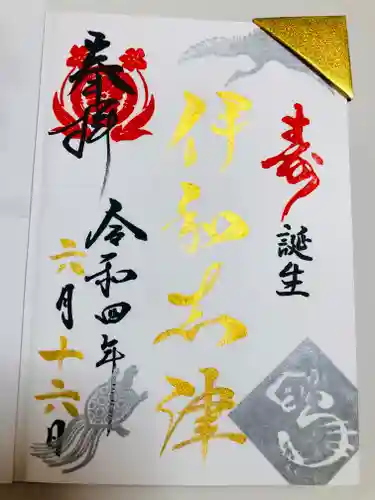 寿
誕生
伊和志津
奉拝
令和四年
六月十六日